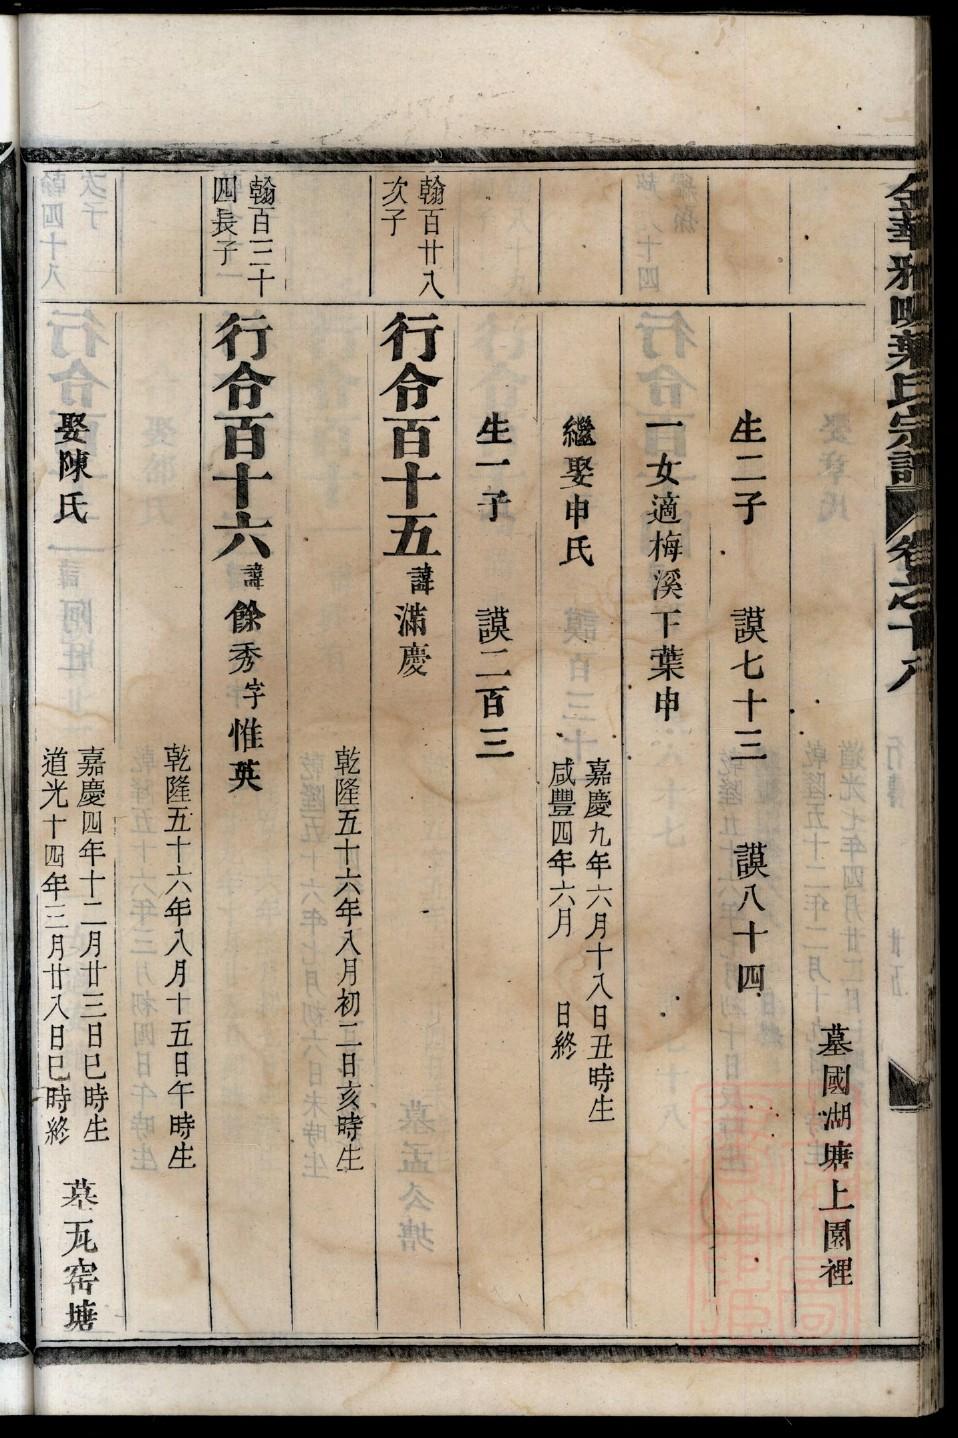 金華雅畈葉氏宗譜 卷之十八
墓國湖塘上園裡
生二子 謨七十三 謨八十四
一女適梅溪下葉申
繼娶申氏
嘉慶九年六月十八日丑時生
咸豐四年六月 日終
生一子 謨二百三
翰百廿八
次子
行令百十五 諱滿慶
乾隆五十六年八月初二日亥時生
翰百三十
四長子
行令百十六 諱餘秀字惟英
乾隆五十六年八月十五日午時生
娶陳氏
嘉慶四年十二月廿三日巳時生
道光十四年三月廿八日巳時終
墓瓦窑塘